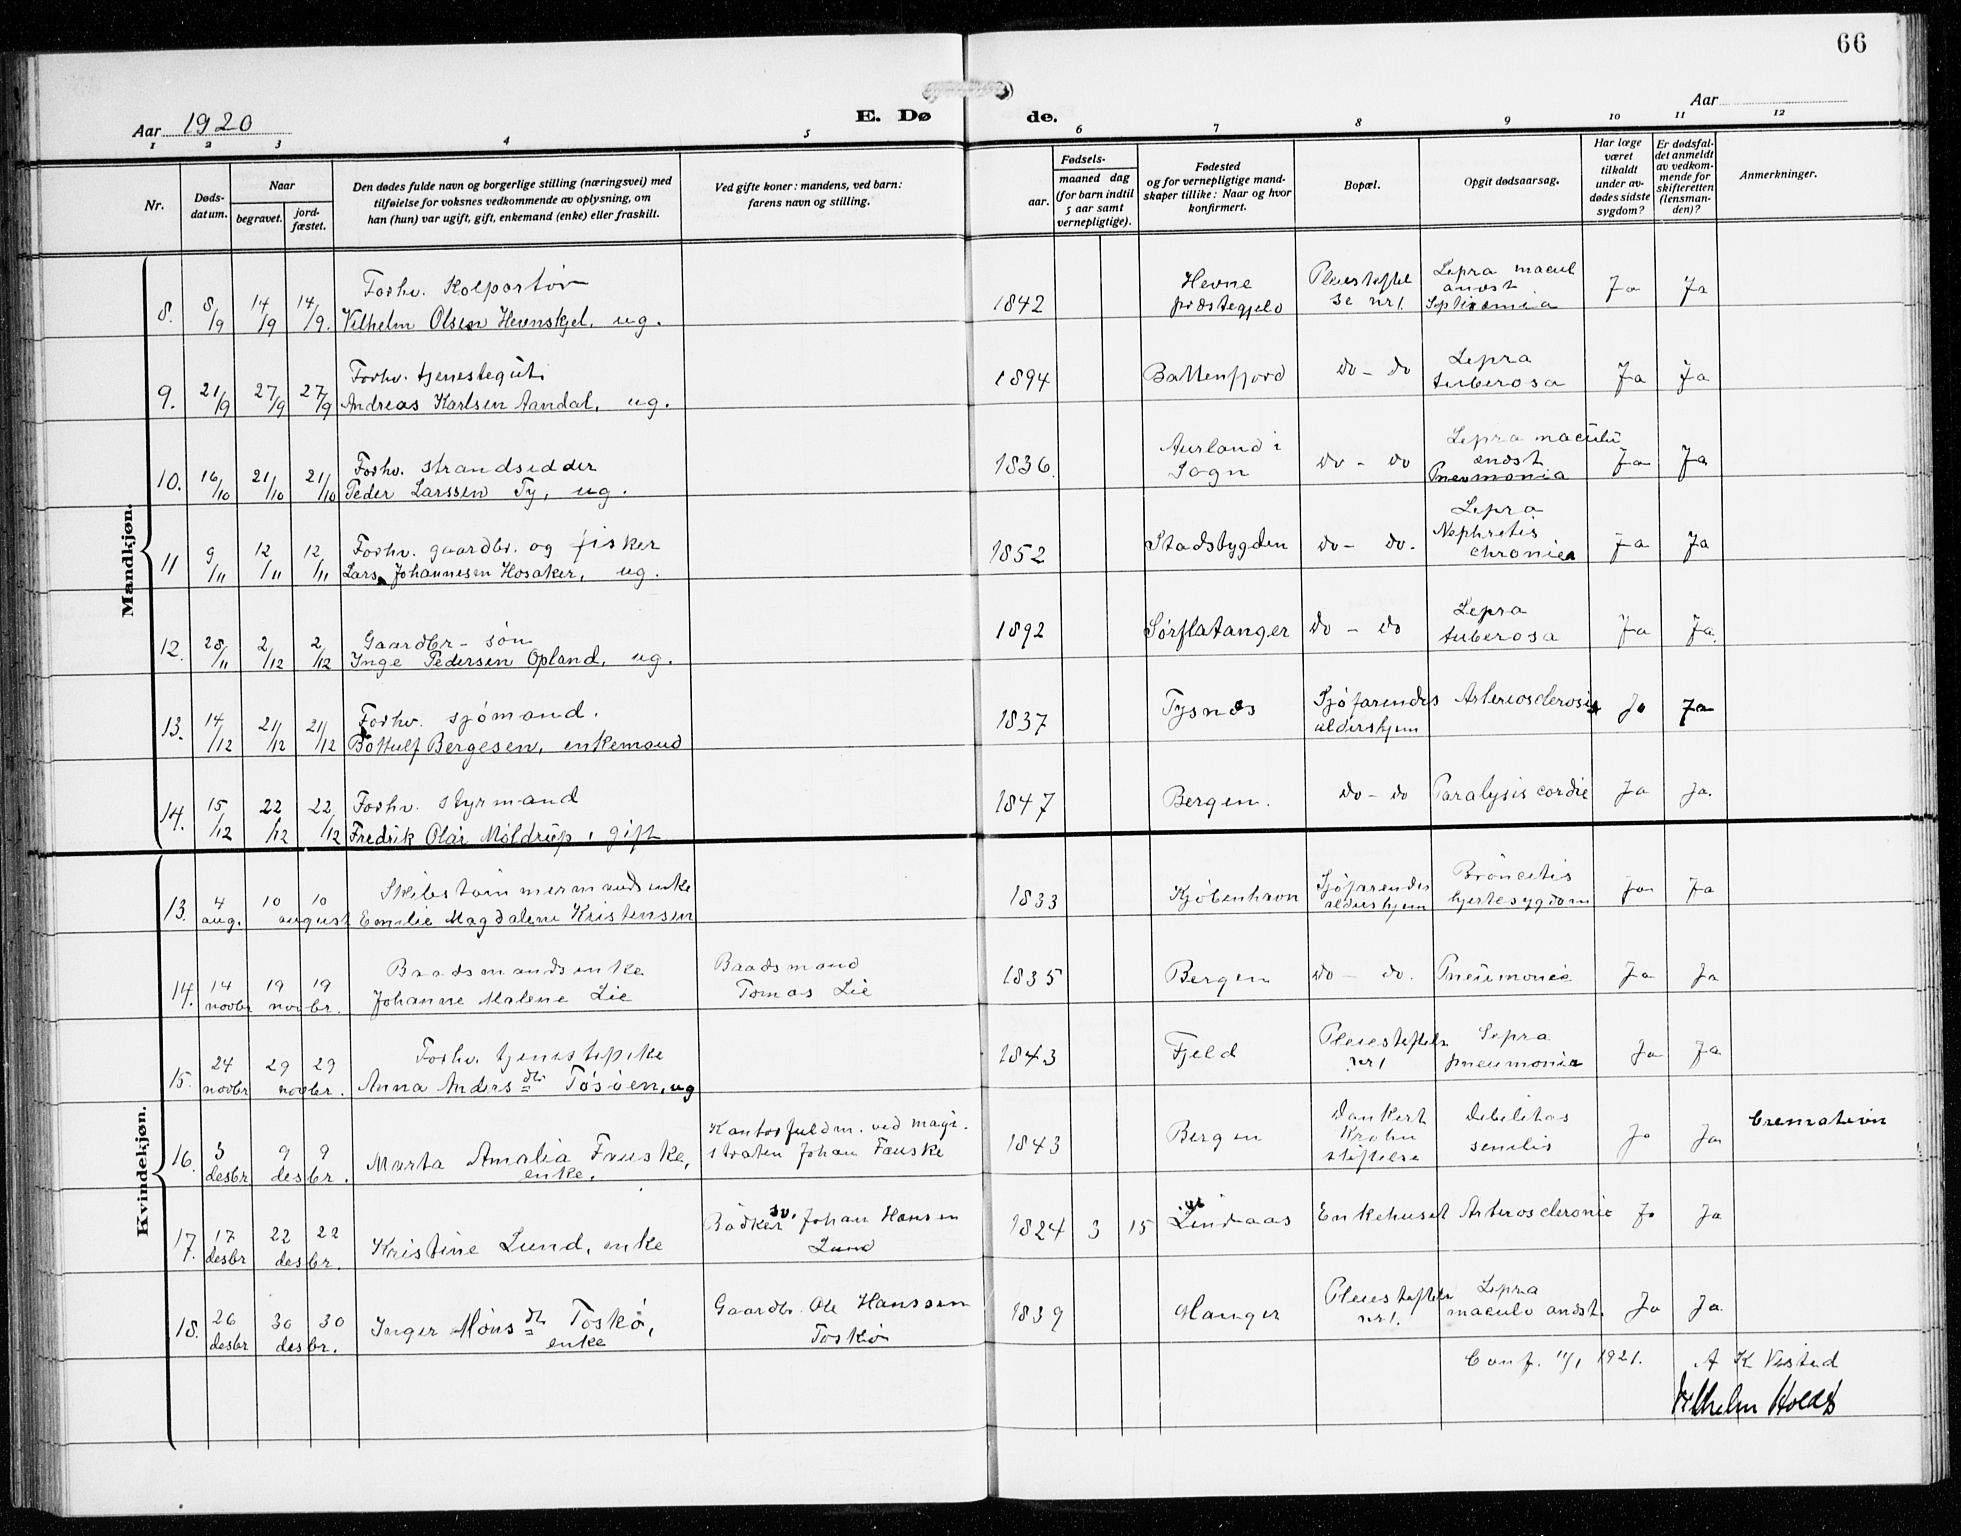 66
Aar 1920
E. Dø
de.
Aar
1 2 3 4 5 6 7 8 9 10 11 12
Nr.
Døds-
datum.
Naar
begravet.
jord-
fæstet.
Den dødes fulde navn og borgerlige stilling (næringsvei) med
tilføielse for voksnes vedkommende av oplysning, om
han (hun) var ugift, gift, enkemand (enke) eller fraskilt.
Ved gifte koner: mandens, ved barn:
farens navn og stilling.
Fødsels-
aar.
maaned dag
(for barn indtil
5 aar samt
vernepligtige).
Fødested
og for vernepligtige mand-
skaper tillike: Naar og hvor
konfirmert.
Bopæl.
Opgit dødsaarsag.
Har læge
været
tilkaldt
under av-
dødes sidste
sygdom?
Er dødsfal-
det anmeldt
av vedkom-
mende for
skifteretten
(lensman-
den)?
Anmerkninger.
Mandkjøn.
8. 8/9 14/9 14/9.
Forhv. Kolportör
Vilhelm Olsen Hevnskjel, ug.
1842
Hevne
præstegjeld
Pleiestiftel
se nr 1.
Lepra macul
anæst
Septicæmia
Ja Ja
9. 21/9 27/9 27/9
Forhv. tjenestegut
Andreas Karlsen Aandal, ug.
1894
Battenfjord
do - do
Lepra
tuberosa
Ja Ja
10. 16/10 21/10 21/10
Forhv. strandsidder
Peder Larssen Ty, ug.
1836.
Aurland i
Sogn
do - do
Lepra maculu
anæst
Pneumonia
Ja Ja
11 9/11 12/11 12/11
Forhv. gaardbr. og fisker
Lars Johannesen Hosaker, ug.
1852
Stadsbygden
do - do.
Lepra
Nephritis
chronica
Ja Ja
12. 28/11 2/12 2/12
Gaardbr - søn
Inge Pedersen Opland, ug.
1892
Sørflatanger
do - do
Lepra
tuberosa
Ja Ja.
13. 14/12 21/12 21/12
Forhv. sjómand.
Bottulf Bergesen, enkemand
1837
Tysnes
Sjöfarendes
aldershjem
Arteriosclerosis
Ja Ja
14. 15/12 22/12 22/12
Forhv. styrmand
Fredrik Olai Møldrup, gift
1847
Bergen.
do - do
Paralysis cordis
Ja Ja.
Kvindekjøn.
13. 4 aug. 10 10 august
Skibstömmermandsenke
Emilie Magdalene Kristensen
1833
Kjöbenhavn
Sjöfarendes
aldershjem
Broncitis
hjertesygdom
Ja Ja
14. 14 novbr 19 19 novbr.
Baadsmandsenke
Johanne Malene Lie
Baadsmand
Tomas Lie
1835
Bergen
do - do.
Pneumonia
Ja Ja
15. 24 novbr 29 29 novbr.
Forhv. tjenestepike
Anna Anders dtr Tösöen, ug
1843
Fjeld
Pleiestiftels
nr 1
Lepra
pneumonia
Ja Ja
16. 3 desbr 9 9 desbr.
Marta Amalia Fauske,
enke.
Kontorfuldm. ved magi-
straten Johan Fauske
1843
Bergen
Dankert
Krohn
stiftelse
Debilitas
senilis
Ja Ja
Cremation
17. 17 desbr 22 22 desbr.
Kristine Lund, enke
Bödkersv. Johan Hansen
Lund
1824 3 15
Lindaas
Enkehuset
Arterosclerosis
Ja Ja
18. 26 desbr 30 30 desbr.
Inger Móns dtr Toskö,
enke
Gaardbr. Ole Hanssen
Toskö
1839
Manger
Pleiestiftels
nr 1.
Lepra
maculo anæst.
Ja Ja
Conf. 11/1 1921. A K Vestad
Vilhelm Holdt